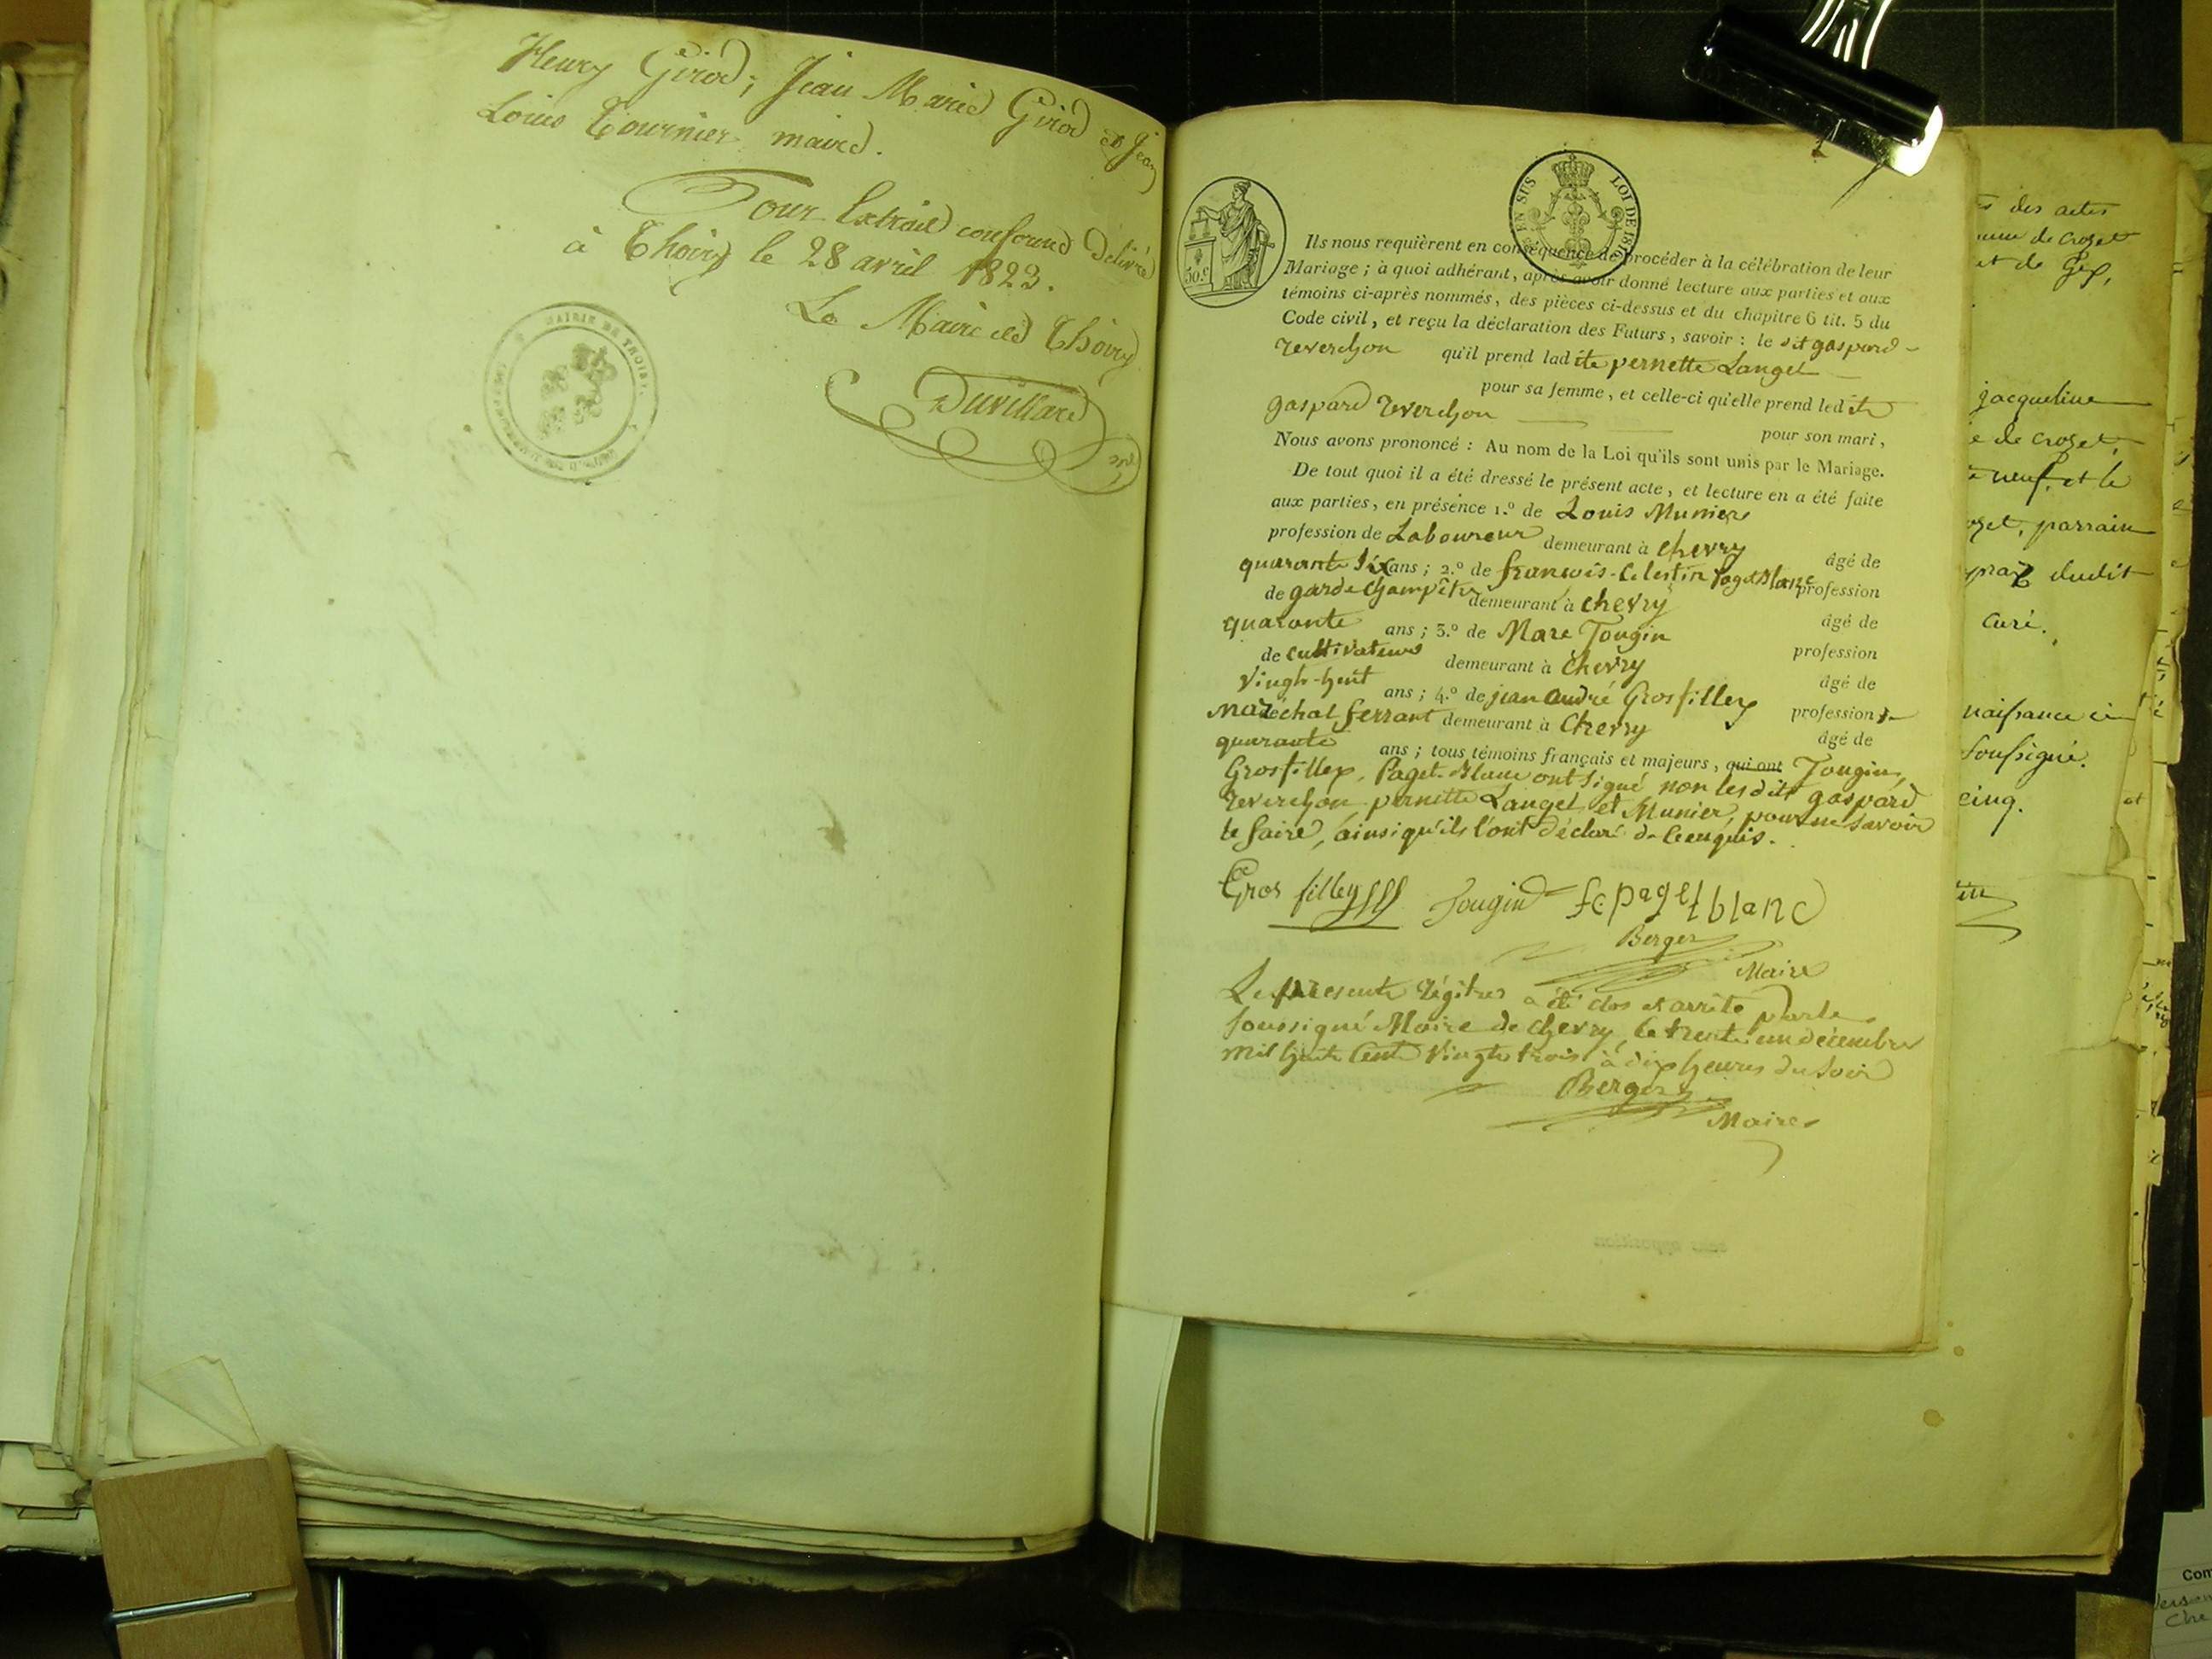 Henry Girod; Jean Marie Girod et Jean
Louis Tournier maire.
Pour Extrait conforme Délivré
à Thoiry le 28 avril 1823.
Le Maire de Thoiry
Duvillard
MAIRIE DE THOIRY
EN SUS LOI DE 1816
50.c
Ils nous requièrent en conséquence de procéder à la célébration de leur
Mariage ; à quoi adhérant, après avoir donné lecture aux parties et aux
témoins ci-après nommés, des pièces ci-dessus et du chapitre 6 tit. 5 du
Code civil, et reçu la déclaration des Futurs, savoir : le dit gaspard
reverchon qu'il prend ladite pernette Langel
pour sa femme, et celle-ci qu'elle prend ledit
gaspard reverchon
pour son mari,
Nous avons prononcé : Au nom de la Loi qu'ils sont unis par le Mariage.
De tout quoi il a été dressé le présent acte, et lecture en a été faite
aux parties, en présence 1.º de Louis Munier
profession de Laboureur demeurant à chevry âgé de
quarante six ans ; 2.º de françois-Celestin Paget Blanc profession
de garde champêtre demeurant à chevry âgé de
quarante ans ; 3.º de Marc Tougin profession
de cultivateur demeurant à chevry âgé de
vingt-huit ans ; 4.º de jean andré Grosfilley profession de
maréchal ferrant demeurant à Chevry âgé de
quarante ans ; tous témoins français et majeurs, qui ont Tougin,
Grosfilley, Paget-Blanc ont signé non lesdits gaspard
reverchon pernette Langel et Munier, pour ne savoir
le faire, ainsi qu'ils l'ont déclaré de ce enquis.
Gros filley Tougin fc paget blanc
Berger
Maire
Le présente régitre a été clos et arrêté par le
soussigné Maire de chevry, le trente un décembre
mil huit cent vingt trois à dix heures du soir
Berger
Maire
des actes
de crozet
et de Gex,
jacqueline
de crozet,
neuf, et le
parrain
dudit
curé.
naissance
soussigné.
cinq.
et
Com